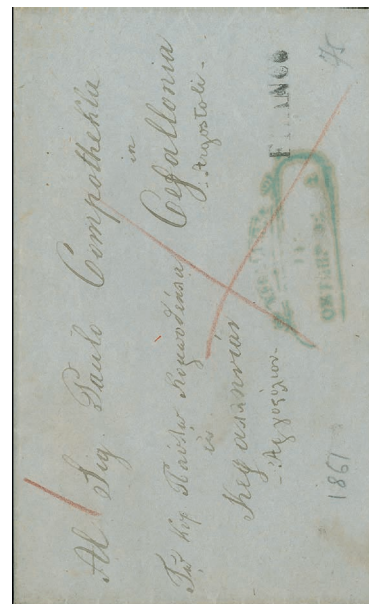 Al Sig. Paulo Compothekla
in
Cefallonia
- Argostoli -
Τῷ Κυρ Παύλῳ Κομποθέκλα
εἰς
Κεφαλληνίαν
- Ἀργοςόλιον -
FRANCO
ΟΚΤΩΒΡ
1861